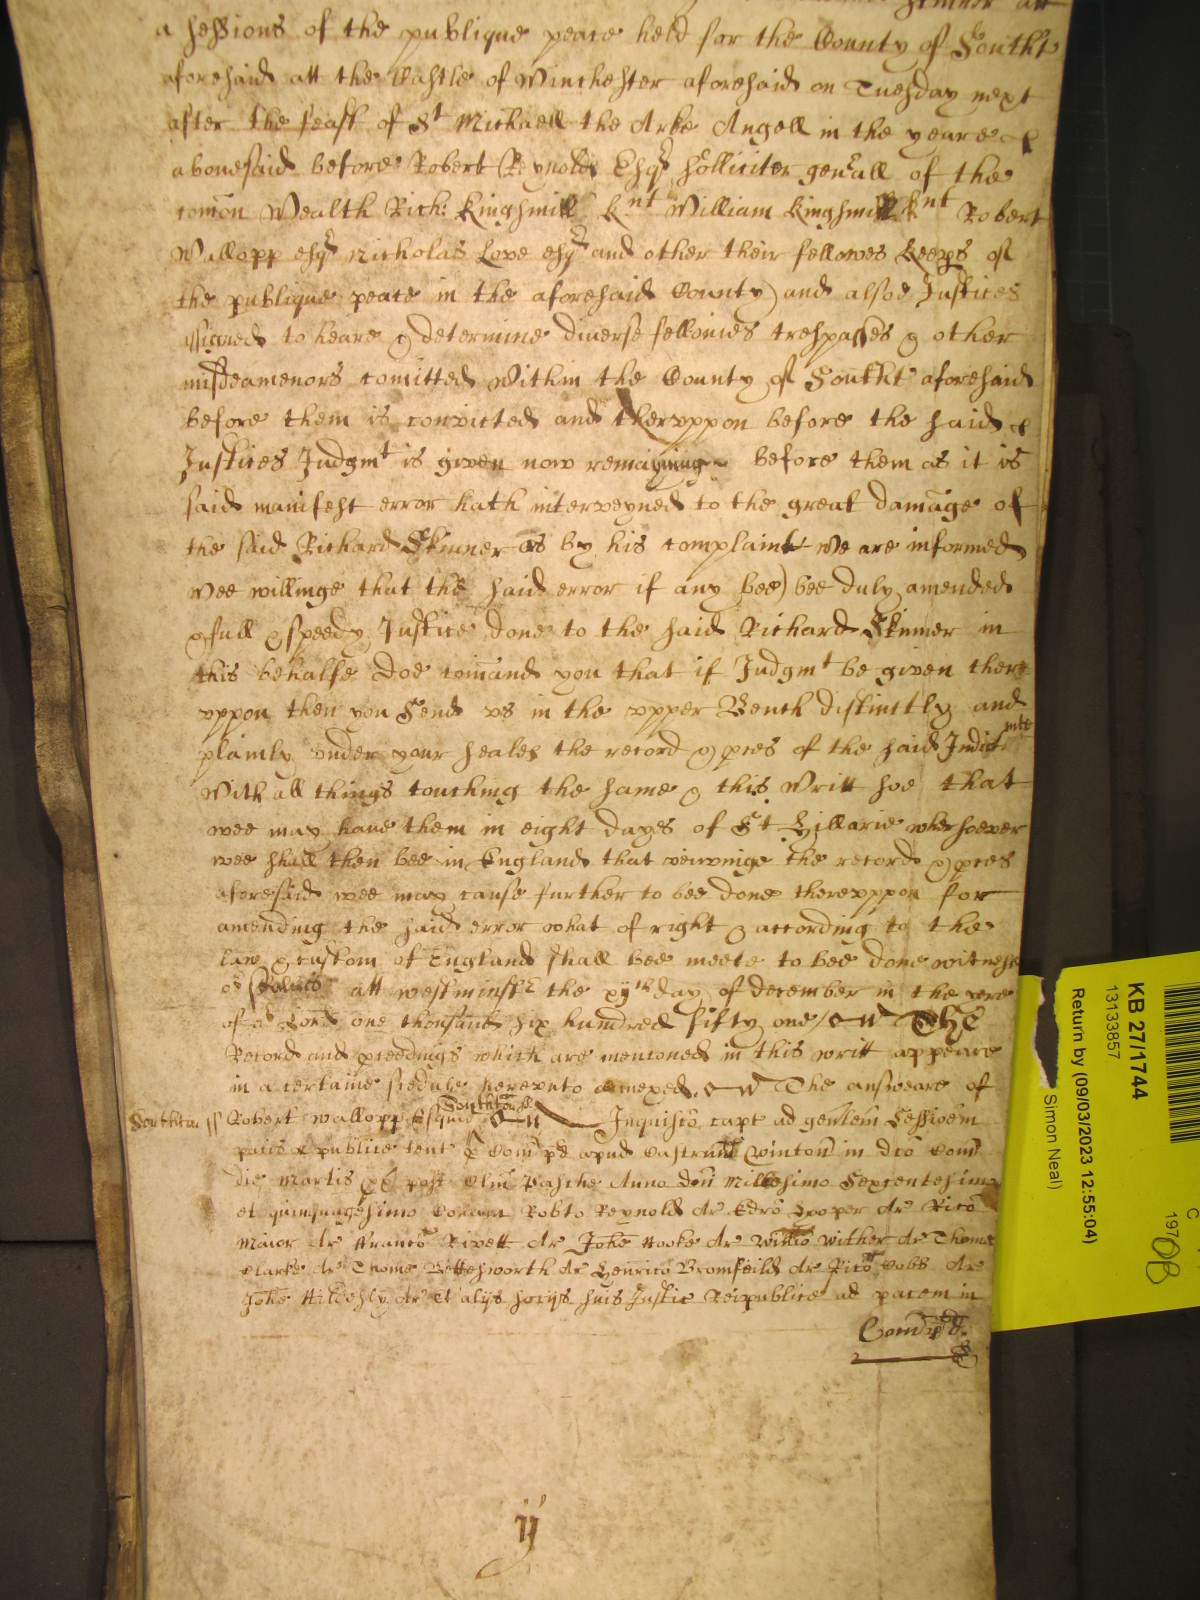 a Sessions of the publique peace held for the County of Southt
aforesaid att the Castle of Winchester aforesaid on Tuesday next
after the feast of St Michaell the Arke Angell in the yeare
abovesaid before Robert Reynolds Esqr Solliciter gen'all of the
com̄on Wealth Rich: Kingsmill Knt William Kingsmill Knt Robert
Wallopp esqr Nicholas Love esqr and other their fellowes Keep's of
the publique peace in the aforesaid County) and alsoe Justices
assigned to heare & determine diverse fellonies trespasses & other
misdeamenors com̄itted within the County of Southt aforesaid
before them is convicted and therevppon before the said
Justices Judgmt is given now remayning before them as it is
said manifest error hath interveyned to the great damage of
the said Richard Skinner as by his complaint we are informed
Wee willinge that the said error if any bee) bee duly amended
& full & speedy Justice done to the said Richard Skinner in
this behalfe doe com̄and you that if Judgmt be given there
vppon then you Send vs in the vpper Bench distinctly and
plainly vnder your seales the record & p'ces of the said Indictmte
With all things touching the same & this Writt soe that
wee may haue them in eight dayes of St Hillarie whersoever
wee shall then bee in England that viewinge the record & p'ces
aforesaid wee may cause further to bee done therevppon for
amending the said error what of right & according to the
law & custom of England shall bee meete to bee done witnesse
att Westminstr the xijth day of december in the yere
of or Lord one thousand six hundred fifty one / THE
Record and p'ceedings which are menconed in this writt appeare
in a certaine scedule herevnto annexed. The answeare of
Southton ss Robert Wallopp Esquier Southton ss Inquisico capt ad gen'lem Sessioem
pacis publice tent p Com pd apud Castrum Winton in dco Com
die Martis post Clm Pasche Anno dni Millesimo Sexcentesimo
et quinquagesimo Coram Robto Reynolds Ar Edro Hooper Ar Rico
Maior Ar Franco Rivett Ar Johe Hooke Ar Willo Wither Ar Thoma
Clarke Ar Thoma Bettesworth Ar Henrico Bromfeild Ar Rico Cobb Ar
Johe Hildesly Ar et alijs socijs suis Justic Reipublice ad pacem in
Com pd
ij
KB 27/1744
13133857
Return by (09/03/2023 12:55:04)
Simon Neal)
C
197